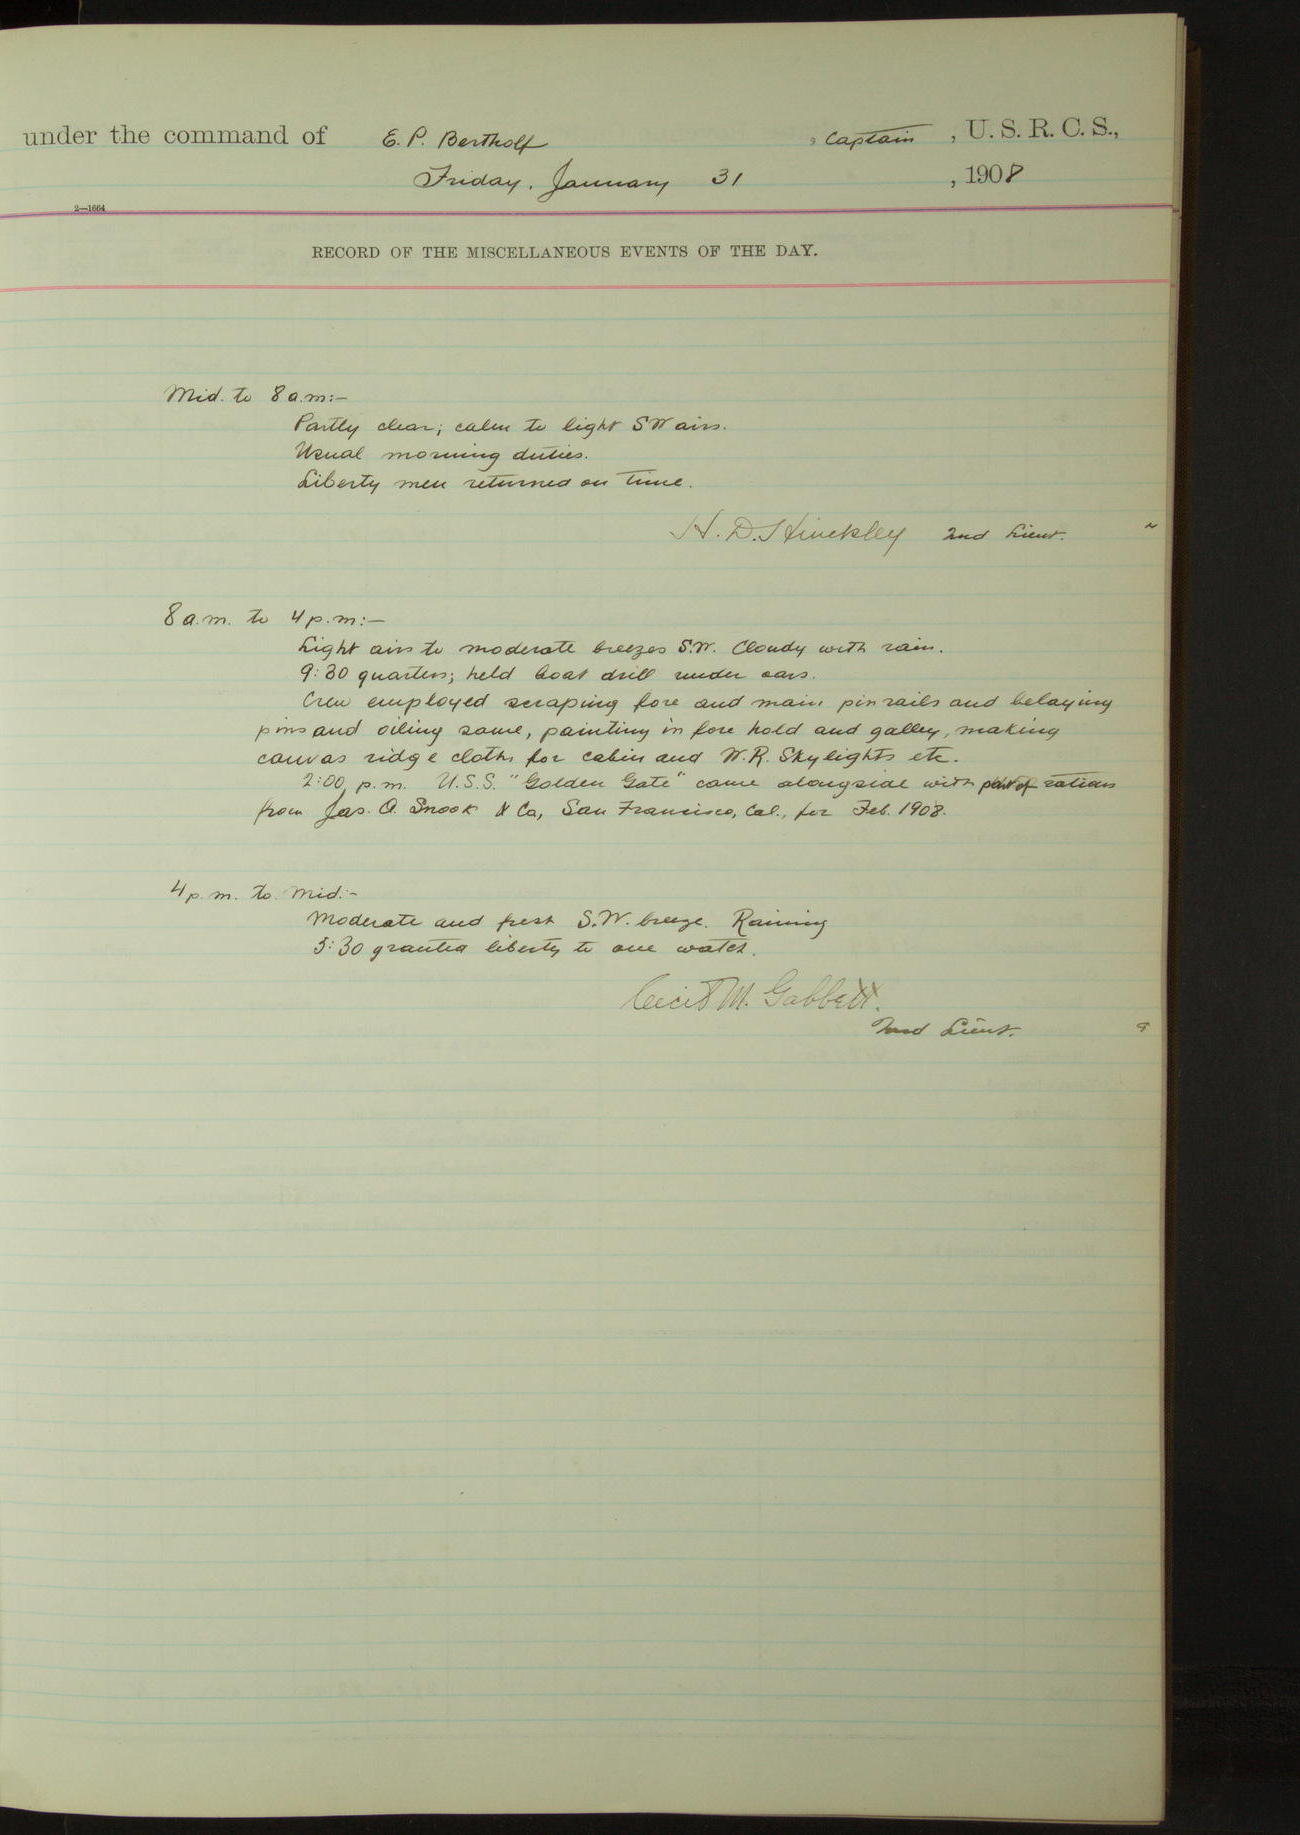 under the command of E. P. Bertholf , Captain , U. S. R. C. S.,
Friday, January 31 , 1908
2—1664
RECORD OF THE MISCELLANEOUS EVENTS OF THE DAY.
Mid. to 8 a.m:—
Partly clear; calm to light SW airs.
Usual morning duties.
Liberty men returned on time.
H. D. Hinckley 2nd Lieut.
8 a.m. to 4 p.m:—
Light airs to moderate breezes S.W. Cloudy with rain.
9:30 quarters; held boat drill under oars.
Crew employed scraping fore and main pinrails and belaying
pins and oiling same, painting in fore hold and galley, making
canvas ridge cloths for cabin and W.R. Skylights etc.
2:00 p.m. U.S.S. "Golden Gate" came alongside with part of rations
from Jas. A. Snook & Co, San Francisco, Cal., for Feb. 1908.
4 p.m. to Mid:-
Moderate and fresh S.W. breeze. Raining
5:30 granted liberty to one watch.
Cecil M. Gabbett.
2nd Lieut.